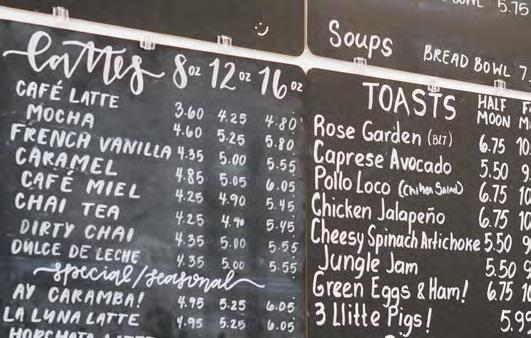 BOWL 5.75
Soups
BREAD BOWL 7.
Lattes 8oz 12oz 16oz
CAFÉ LATTE 3.60 4.25 4.80
MOCHA 4.60 5.25 5.80
FRENCH VANILLA 4.35 5.00 5.55
CARAMEL 4.85 5.05 6.05
CAFÉ MIEL 4.25 4.90 5.45
CHAI TEA 4.25 4.90 5.45
DIRTY CHAI 4.35 5.00 5.55
DULCE DE LECHE 4.35 5.00 5.55
special/seasonal
AY CARAMBA! 4.95 5.25 6.05
LA LUNA LATTE 4.95 5.25 6.05
HORCHATA LATTE
TOASTS HALF MOON
Rose Garden (BLT) 6.75 10
Caprese Avocado 5.50 9
Pollo Loco (Chicken Salad) 6.75 10
Chicken Jalapeño 6.75 10
Cheesy Spinach Artichoke 5.50 9
Jungle Jam 5.50 9
Green Eggs & Ham! 6.75 10
3 Llitte Pigs! 5.95